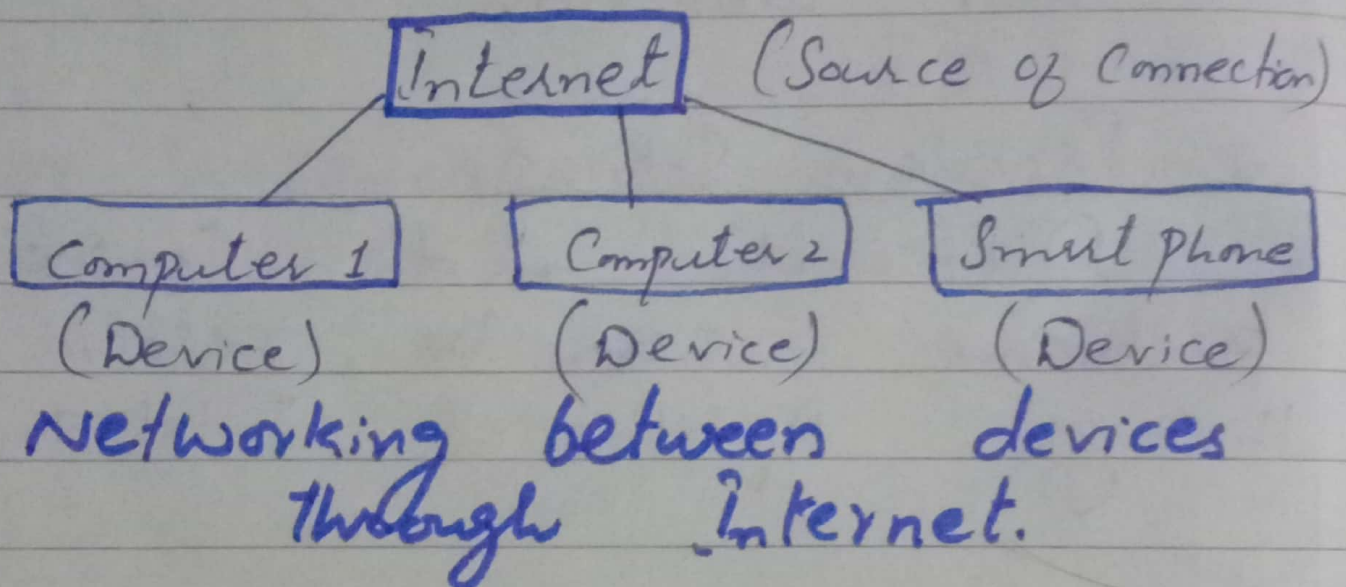 Internet (Source of Connection)
Computer 1 Computer 2 Smart phone
(Device) (Device) (Device)
Networking between devices
through Internet.